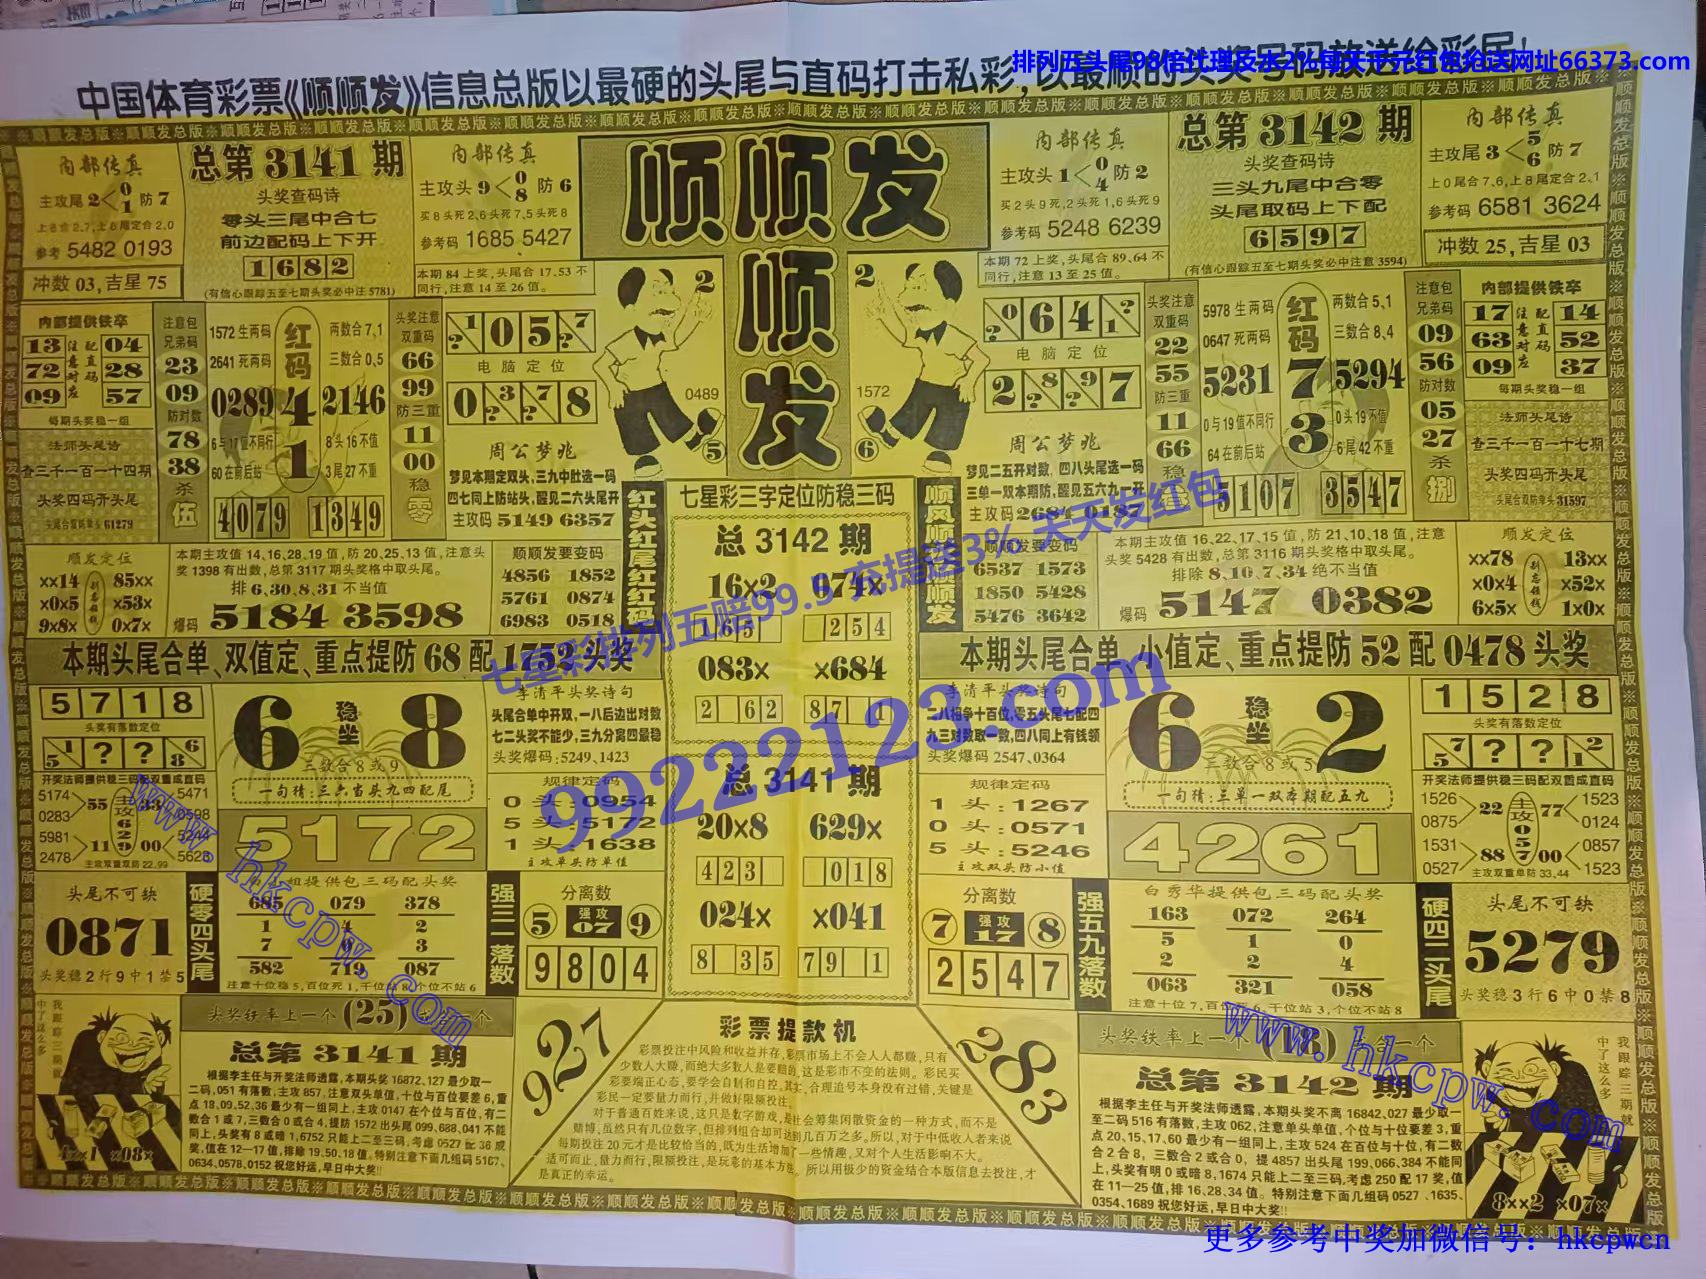 中国体育彩票《顺顺发》信息总版以最硬的头尾与直码打击私彩，以最顺的头奖号码放送给彩民!
排列五头尾98倍代理反水2%每天千元红包抢送网址66373.com
内部传真
主攻尾 2<0 1 防 7
上8合2.7,上6尾定合2.0
参考 5482 0193
冲数 03, 吉星 75
总第 3141 期
头奖查码诗
零头三尾中合七
前边配码上下开
1 6 8 2
(有信心跟踪五至七期头奖必中注 5781)
内部传真
主攻头 9<0 8 防 6
买8头死2,6头死7,5头死8
参考码 1685 5427
本期 84 上奖, 头尾合 17、53 不
同行, 注意 14 至 26 值。
顺顺发
顺
发
内部传真
主攻头 1<0 4 防 2
买2头9死,2头死1,6头死9
参考码 5248 6239
本期 72 上奖, 头尾合 89、64 不
同行, 注意 13 至 25 值。
总第 3142 期
头奖查码诗
三头九尾中合零
头尾取码上下配
6 5 9 7
(有信心跟踪五至七期头奖必中注意 3594)
内部传真
主攻尾 3<5 6 防 7
上0尾合7,6,上8尾定合2、1
参考码 6581 3624
冲数 25, 吉星 03
内部提供铁卒
13 注 配 04
72 意 直 28
09 对 码 应 57
每期头奖稳一组
法师头尾诗
查三千一百一十四期
头奖四码开头尾
头尾合双防单头 61279
注意包
兄弟码
23
09
防对数
78
38
杀
伍
1572 生两码
2641 死两码
红码
两数合 7,1
三数合 0,5
0289 4 2146
1
6 与 17 值不同行
60 在前后站
8 头 16 不值
3 尾 27 不重
4079 1349
头奖注意
双重码
66
99
防三重
11
00
稳
零
? 1 0 5 ? 7
电脑定位
0 3 ? 7 ? 8
周公梦兆
梦见本期定双头, 三九中肚选一码
四七同上防站头, 醒见二六头尾开
主攻码 5149 6357
2
0489
5
2
1572
6
? 0 6 4 1 ?
电脑定位
2 8 ? 9 ? 7
周公梦兆
梦见二五开对数, 四八头尾选一码
三单一双本期防, 醒见五六九一开
主攻码 2684 0187
头奖注意
双重码
22
55
防三重
11
66
稳
5978 生两码
0647 死两码
红码
两数合 5、1
三数合 8、4
5231 7 5294
3
0 与 19 值不同行
64 在前后站
0 头 19 不值
6 尾 42 不重
5107 3547
注意包
兄弟码
09
56
防对数
05
27
杀
捌
内部提供铁卒
17 注 配 14
63 意 直 52
09 对 码 应 37
每期头奖稳一组
法师头尾诗
查三千一百一十七期
头奖四码开头尾
头尾合双防单头 31597
顺发定位
xx14 85xx
x0x5 x53x
9x8x 0x7x
别忘领钱
本期主攻值 14、16、28、19 值, 防 20、25、13 值, 注意头
奖 1398 有出数, 总第 3117 期头奖格中取头尾。
排 6,30,8,31 不当值
爆码 5184 3598
顺顺发要变码
4856 1852
5761 0874
6983 0518
红头红尾红红码
七星彩三字定位防稳三码
总 3142 期
16x2 074x
165 254
083x x684
2 62 87 1
总 3141 期
20x8 629x
423 018
024x x041
8 35 79 1
顺风顺水顺顺发
顺顺发要变码
6537 1573
1850 5428
5476 3642
本期主攻值 16、22、17、15 值, 防 21、10、18 值, 注意头
奖 5428 有出数, 总第 3116 期头奖格中取头尾。
排除 8、10、7、34 绝不当值
爆码 5147 0382
顺发定位
xx78 13xx
x0x4 x52x
6x5x 1x0x
别忘领钱
本期头尾合单、双值定、重点提防 68 配 1752 头奖
本期头尾合单、小值定、重点提防 52 配 0478 头奖
5 7 1 8
头奖有落数定位
5 1 ? ? 8 6
开奖法师提供稳三码配双重成直码
5174 55 主攻 33 5471
0283 6 0598
5981 11 2 00 5244
2478 9 5623
主攻双重双防 22,99
6 稳坐 8
三数合 8 或 9
一句猜: 三六当头九四配尾
5172
李清平头奖诗句
头尾合单中开双, 一八后边出对数
七二头奖不能少, 三九分离四最稳
头奖爆码: 5249,1423
规律定码
0 头: 0954
5 头: 5172
1 头: 1638
主攻单头防单值
李清平头奖诗句
二八相争十百位, 零五头尾七配四
九三对数取一数, 四八同上有钱领
头奖爆码 2547、0364
规律定码
1 头: 1267
0 头: 0571
5 头: 5246
主攻双头防小值
6 稳坐 2
三数合 8 或 5
一句猜: 三单一双本期配五九
4261
1 5 2 8
头奖有落数定位
5 7 ? ? 1 2
开奖法师提供稳三码配双重成直码
1526 22 主攻 77 1523
0875 0 0124
1531 88 5 00 0857
0527 7 1523
主攻双重单防 33,44
头尾不可缺
0871
头奖稳 2 行 9 中 1 禁 5
硬零四头尾
姐提供包三码配头奖
685 079 378
1 4 2
7 6 3
582 719 087
注意十位稳 5, 百位死 1, 千位站 8, 个位不站 6
强三一落数
分离数
5 强攻 07 9
9 8 0 4
分离数
7 强攻 17 8
2 5 4 7
强五九落数
白秀华提供包三码配头奖
163 072 264
5 1 0
2 2 4
063 321 058
注意十位 7, 百位死 6, 千位站 3, 个位不站 8
硬四二头尾
头尾不可缺
5279
头奖稳 3 行 6 中 0 禁 8
我跟踪三期就
中了这么多
4xx1 x08x
头奖铁率上一个 (25) 一个
总第 3141 期
根据李主任与开奖法师透露, 本期头奖 16872,127 最少取一
二码, 051 有落数, 主攻 857, 注意双头单值, 十位与百位要差 6, 重
点 18、09、52、36 最少有一组同上, 主攻 0147 在个位与百位, 有二
数合 1 或 7, 三数合 0 或合 4, 提防 1572 出头尾 099、688、041 不能
同上, 头奖有 8 或暗 1, 6752 只能上二至三码, 考虑 0527 配 36 成
奖, 值在 12—17 值, 排除 19、50、18 值。特别注意下面几组码 5167、
0634、0578、0152 祝您好运, 早日中大奖!!
927
彩票提款机
彩票投注中风险和收益并存, 彩票市场上不会人人都赚, 只有
少数人大赚, 而绝大多数人是要赔的, 这是彩市不变的法则。彩民买
彩要端正心态, 要学会自制和自控, 其实, 合理追号本身没有过错, 关键是
彩民一定要量力而行, 并做好限额投注。
对于普通百姓来说, 这只是数字游戏, 是社会筹集闲散资金的一种方式, 而不是
赌博, 虽然只有几位数字, 但排列组合却可达到几百万之多。所以, 对于中低收入者来说
每期投注 20 元才是比较恰当的, 既为生活增加了一些情趣, 又对个人生活影响不大。
适可而止, 量力而行, 限额投注, 是玩彩的基本方法。所以用极少的资金结合本版信息去投注, 才
是真正的幸运。
283
头奖铁率上一个 (18) 合一个
总第 3142 期
根据李主任与开奖法师透露, 本期头奖不离 16842,027 最少取一
至二码 516 有落数, 主攻 062, 注意单头单值, 个位与十位要差 3, 重
点 20、15、17、60 最少有一组同上, 主攻 524 在百位与十位, 有二数
合 2 合 8, 三数合 2 或合 0, 提 4857 出头尾 199、066、384 不能同
上, 头奖有明 0 或暗 8, 1674 只能上二至三码, 考虑 250 配 17 奖, 值
在 11—25 值, 排 16、28、34 值。特别注意下面几组码 0527、1635、
0354、1689 祝您好运, 早日中大奖!!
我跟踪三期就
中了这么多
8xx2 x07x
七星彩排列五赔99.5 充提送3% 天天发红包
99222123.com
www.hkcpw.com
www.hkcpw.com
更多参考中奖加微信号：hkcpwcn